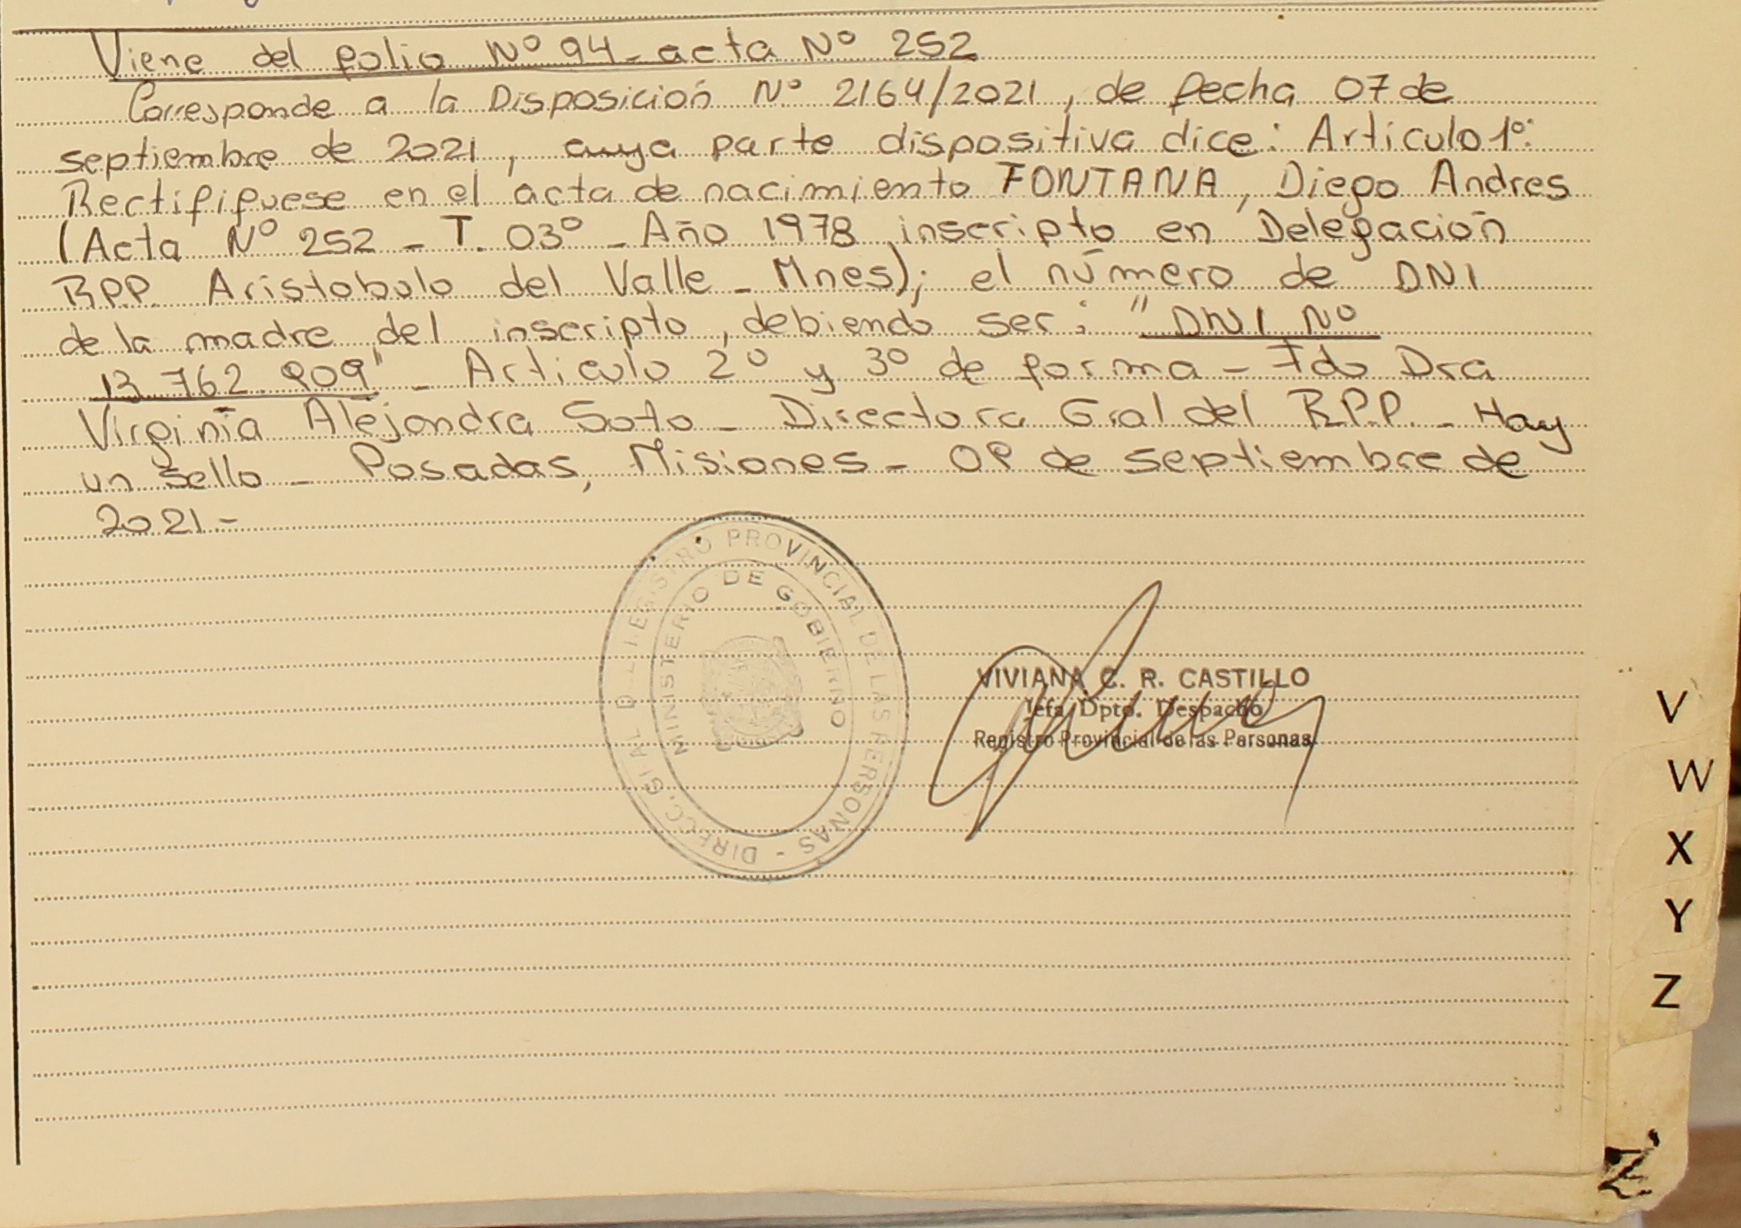 Viene del folio Nº 94 - acta Nº 252
Corresponde a la Disposición Nº 2164/2021, de fecha 07 de
septiembre de 2021, cuya parte dispositiva dice: Artículo 1º:
Rectififuese en el acta de nacimiento FONTANA, Diego Andres
(Acta Nº 252 - T. 03º - Año 1978 inscripto en Delegación
R.P.P. Aristobulo del Valle - Mnes); el número de DNI
de la madre del inscripto, debiendo ser: "DNI Nº
13.762.809" - Articulo 2º y 3º de forma - Fdo Dra
Virginia Alejandra Soto - Directora Gral del R.P.P. - Hay
un sello - Posadas, Misiones - 08 de septiembre de
2021 -
DIRECC. GRAL DEL REGISTRO PROVINCIAL DE LAS PERSONAS -
MINISTERIO DE GOBIERNO
VIVIANA C. R. CASTILLO
Jefa Dpto. Despacho
Registro Provincial de las Personas
V
W
X
Y
Z
Z